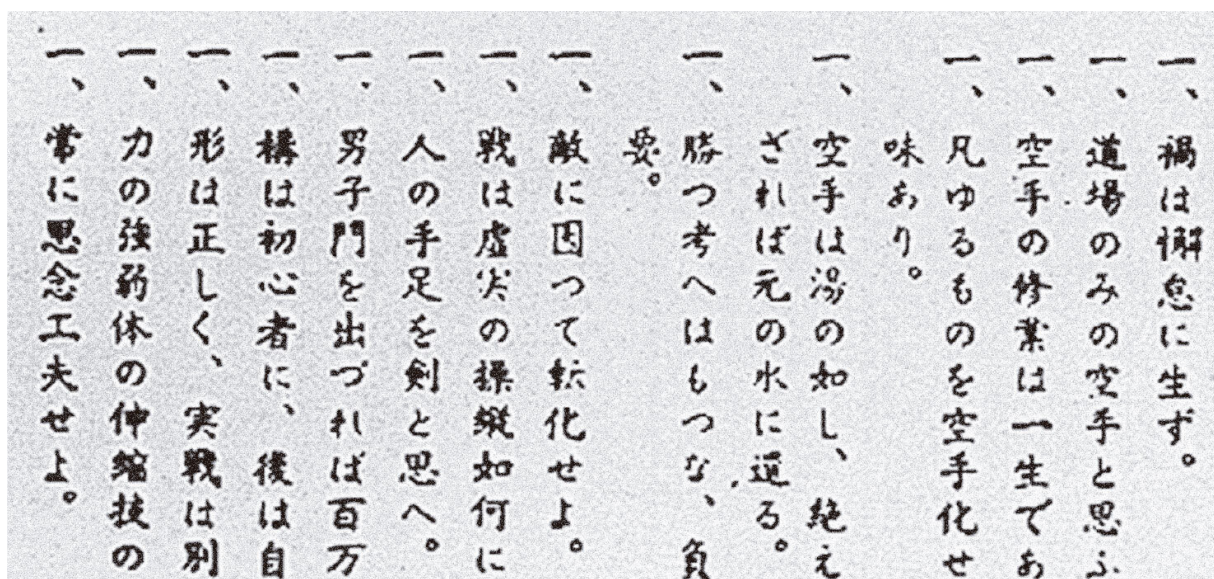 一、禍は懈怠に生ず。
一、道場のみの空手と思ふ
一、空手の修業は一生であ
一、凡ゆるものを空手化せ
味あり。
一、空手は湯の如し、絶え
ざれば元の水に還る。
一、勝つ考へはもつな、負
要。
一、敵に因つて転化せよ。
一、戦は虚実の操縦如何に
一、人の手足を剣と思へ。
一、男子門を出づれば百万
一、構は初心者に、後は自
一、形は正しく、実戦は別
一、力の強弱体の伸縮技の
一、常に思念工夫せよ。